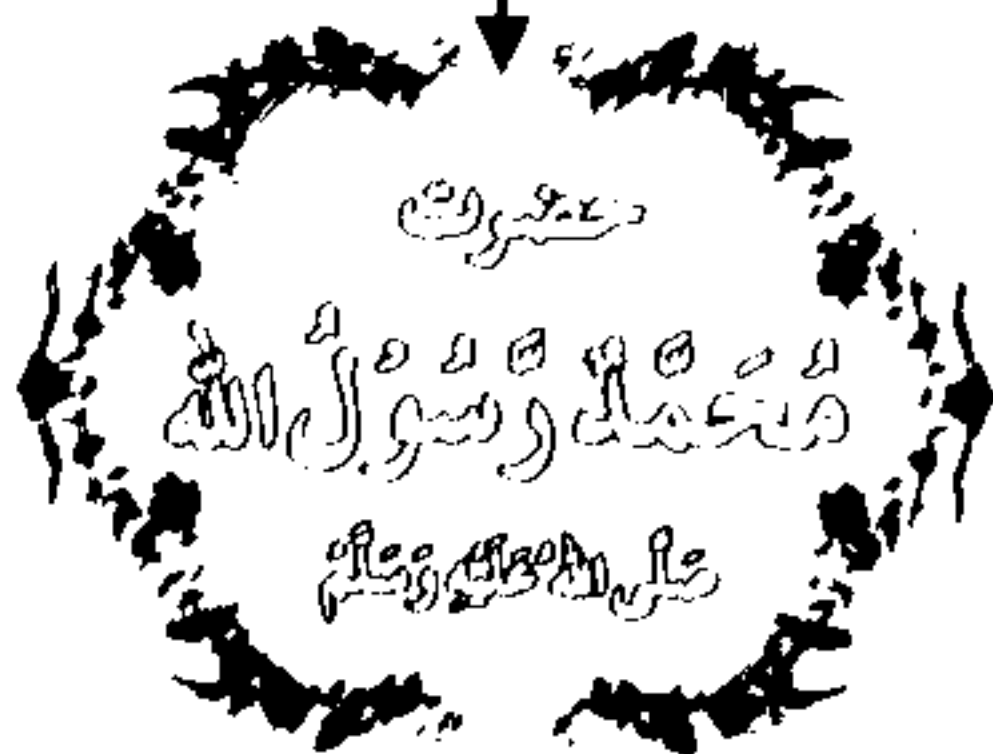 حضرت
مُحَمَّدٌ رَّسُوْلُ اللّٰه
صلی اللہ علیہ وسلم